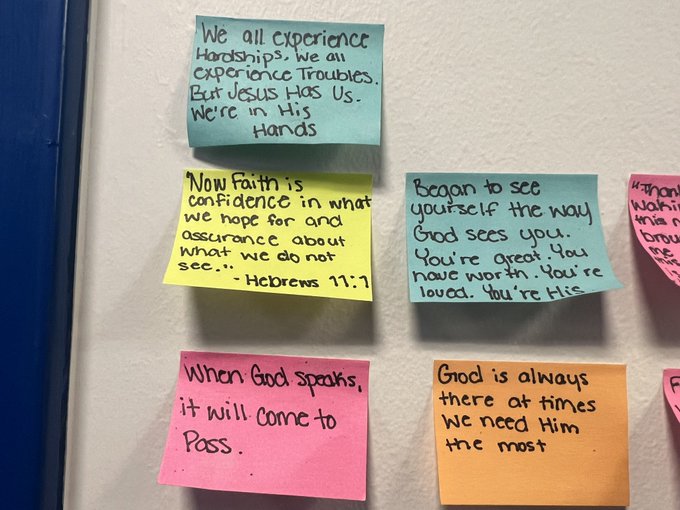 We all experience
Hardships. We all
experience Troubles.
But Jesus Has Us.
We're in His
Hands
"Now Faith is
confidence in what
we hope for and
assurance about
what we do not
see."
- Hebrews 11:1
Began to see
yourself the way
God sees you.
You're great. You
have worth. You're
loved. You're His
When God speaks,
it will come to
Pass.
God is always
there at times
we need Him
the most